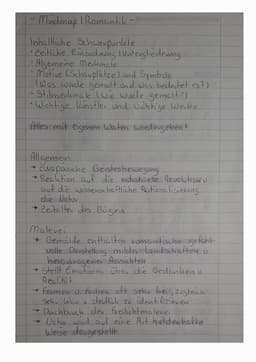 - Mindmap (Romantik -
Inhaltliche Schwerpunkte:
- Zeitliche Einordnung, Untergliederung
- Allgemeine Merkmale
- Motive (Schauplätze) und Symbole
(Was wurde gemalt und was bedeutet es?)
- Stilmerkmale (Wie wurde gemalt?)
- Wichtige Künstler und wichtige Werke
Alles mit eigenen Worten wiedergeben!
Allgemein:
→ Europäische Geistesbewegung
→ Reaktion auf die industrielle Revolution
auf die wissenschaftliche Rationalisierung
die Natur
→ Zeitalter des Bürgers
Malerei:
→ Gemälde enthalten romantische gefühl-
volle Darstellung wilder Landschaften u
→ Stellt Emotionen über die Gedanken u
Realität
→ Formen u Farben oft sehr
sehr u deutlich zu identifizieren
→ Durchbruch der Freilichtmalerei
→ Natur wird auf eine Art heldenhafte
Weise dargestellt